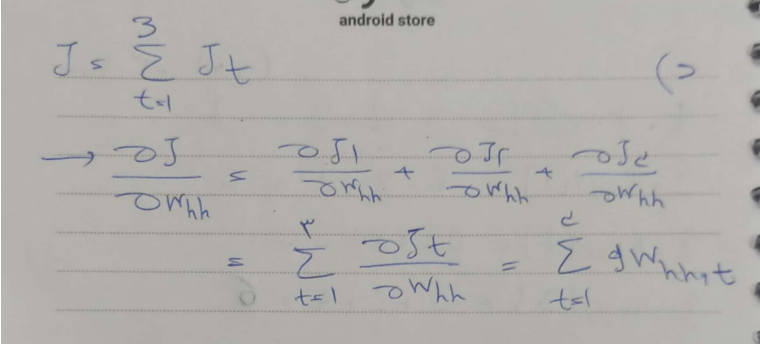 android store
J = \sum_{t=1}^{3} J_t
(ج
→ \frac{∂J}{∂W_{hh}} = \frac{∂J_1}{∂W_{hh}} + \frac{∂J_٢}{∂W_{hh}} + \frac{∂J_٣}{∂W_{hh}}
= \sum_{t=1}^{٣} \frac{∂J_t}{∂W_{hh}} = \sum_{t=1}^{٣} gW_{hh,t}